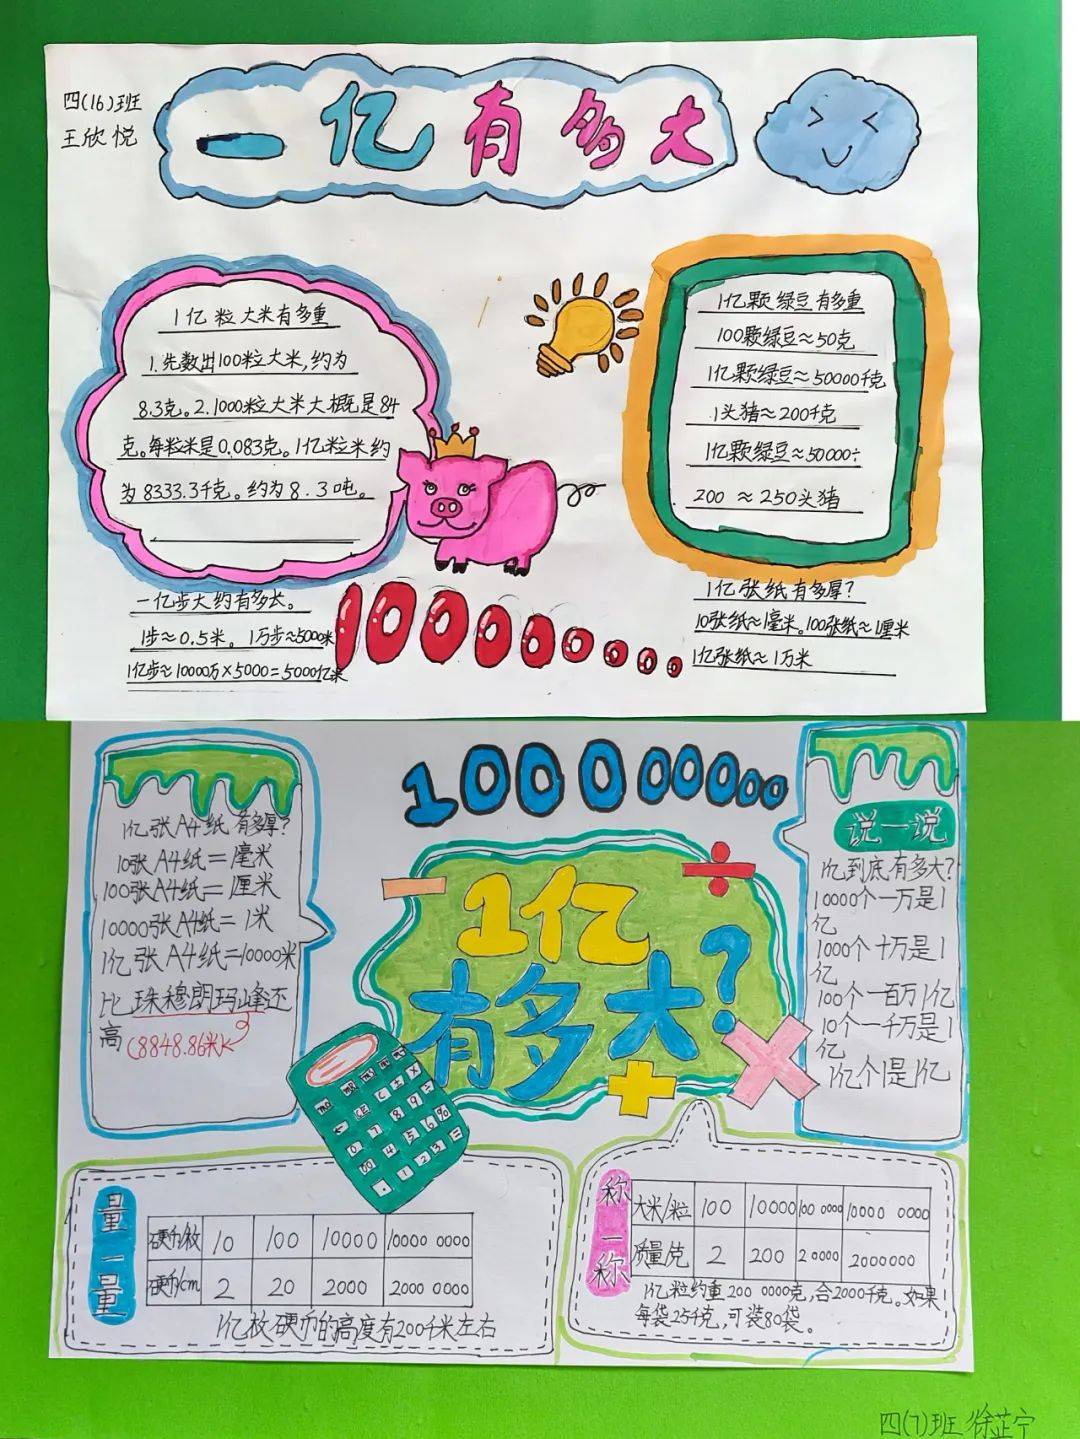 四(16)班
王欣悦
一亿有多大
1亿粒大米有多重
1.先数出100粒大米,约为
8.3克。2.1000粒大米大概是84
克。每粒米是0.083克。1亿粒米约
为8333.3千克。约为8.3吨。
1亿颗绿豆有多重
100颗绿豆≈50克
1亿颗绿豆≈50000千克
1头猪≈200千克
1亿颗绿豆≈50000÷
200 ≈250头猪
一亿步大约有多长。
1步≈0.5米。1万步≈5000米
1亿步≈10000万×5000=5000亿米
100000000
1亿张纸有多厚?
10张纸≈1毫米。100张纸≈1厘米
1亿张纸≈1万米
1亿张A4纸有多厚?
10张A4纸=1毫米
100张A4纸=1厘米
10000张A4纸=1米
1亿张A4纸=10000米
比珠穆朗玛峰还
高(8848.86米)
100000000
1亿
有多大?
说一说
1亿到底有多大?
10000个一万是1
亿
1000个十万是1
亿
100个一百万1亿
10个一千万是1
亿
1亿个1是1亿
量一量
硬币/枚 10 100 10000 10000 0000
硬币/cm 2 20 2000 2000 0000
1亿枚硬币的高度有200千米左右
称一称
大米/粒 100 10000 100 0000 10000 0000
质量/克 2 200 20000 2000000
1亿粒约重200 0000克,合2000千克。如果
每袋25千克,可装80袋。
四(7)班 徐芷宁